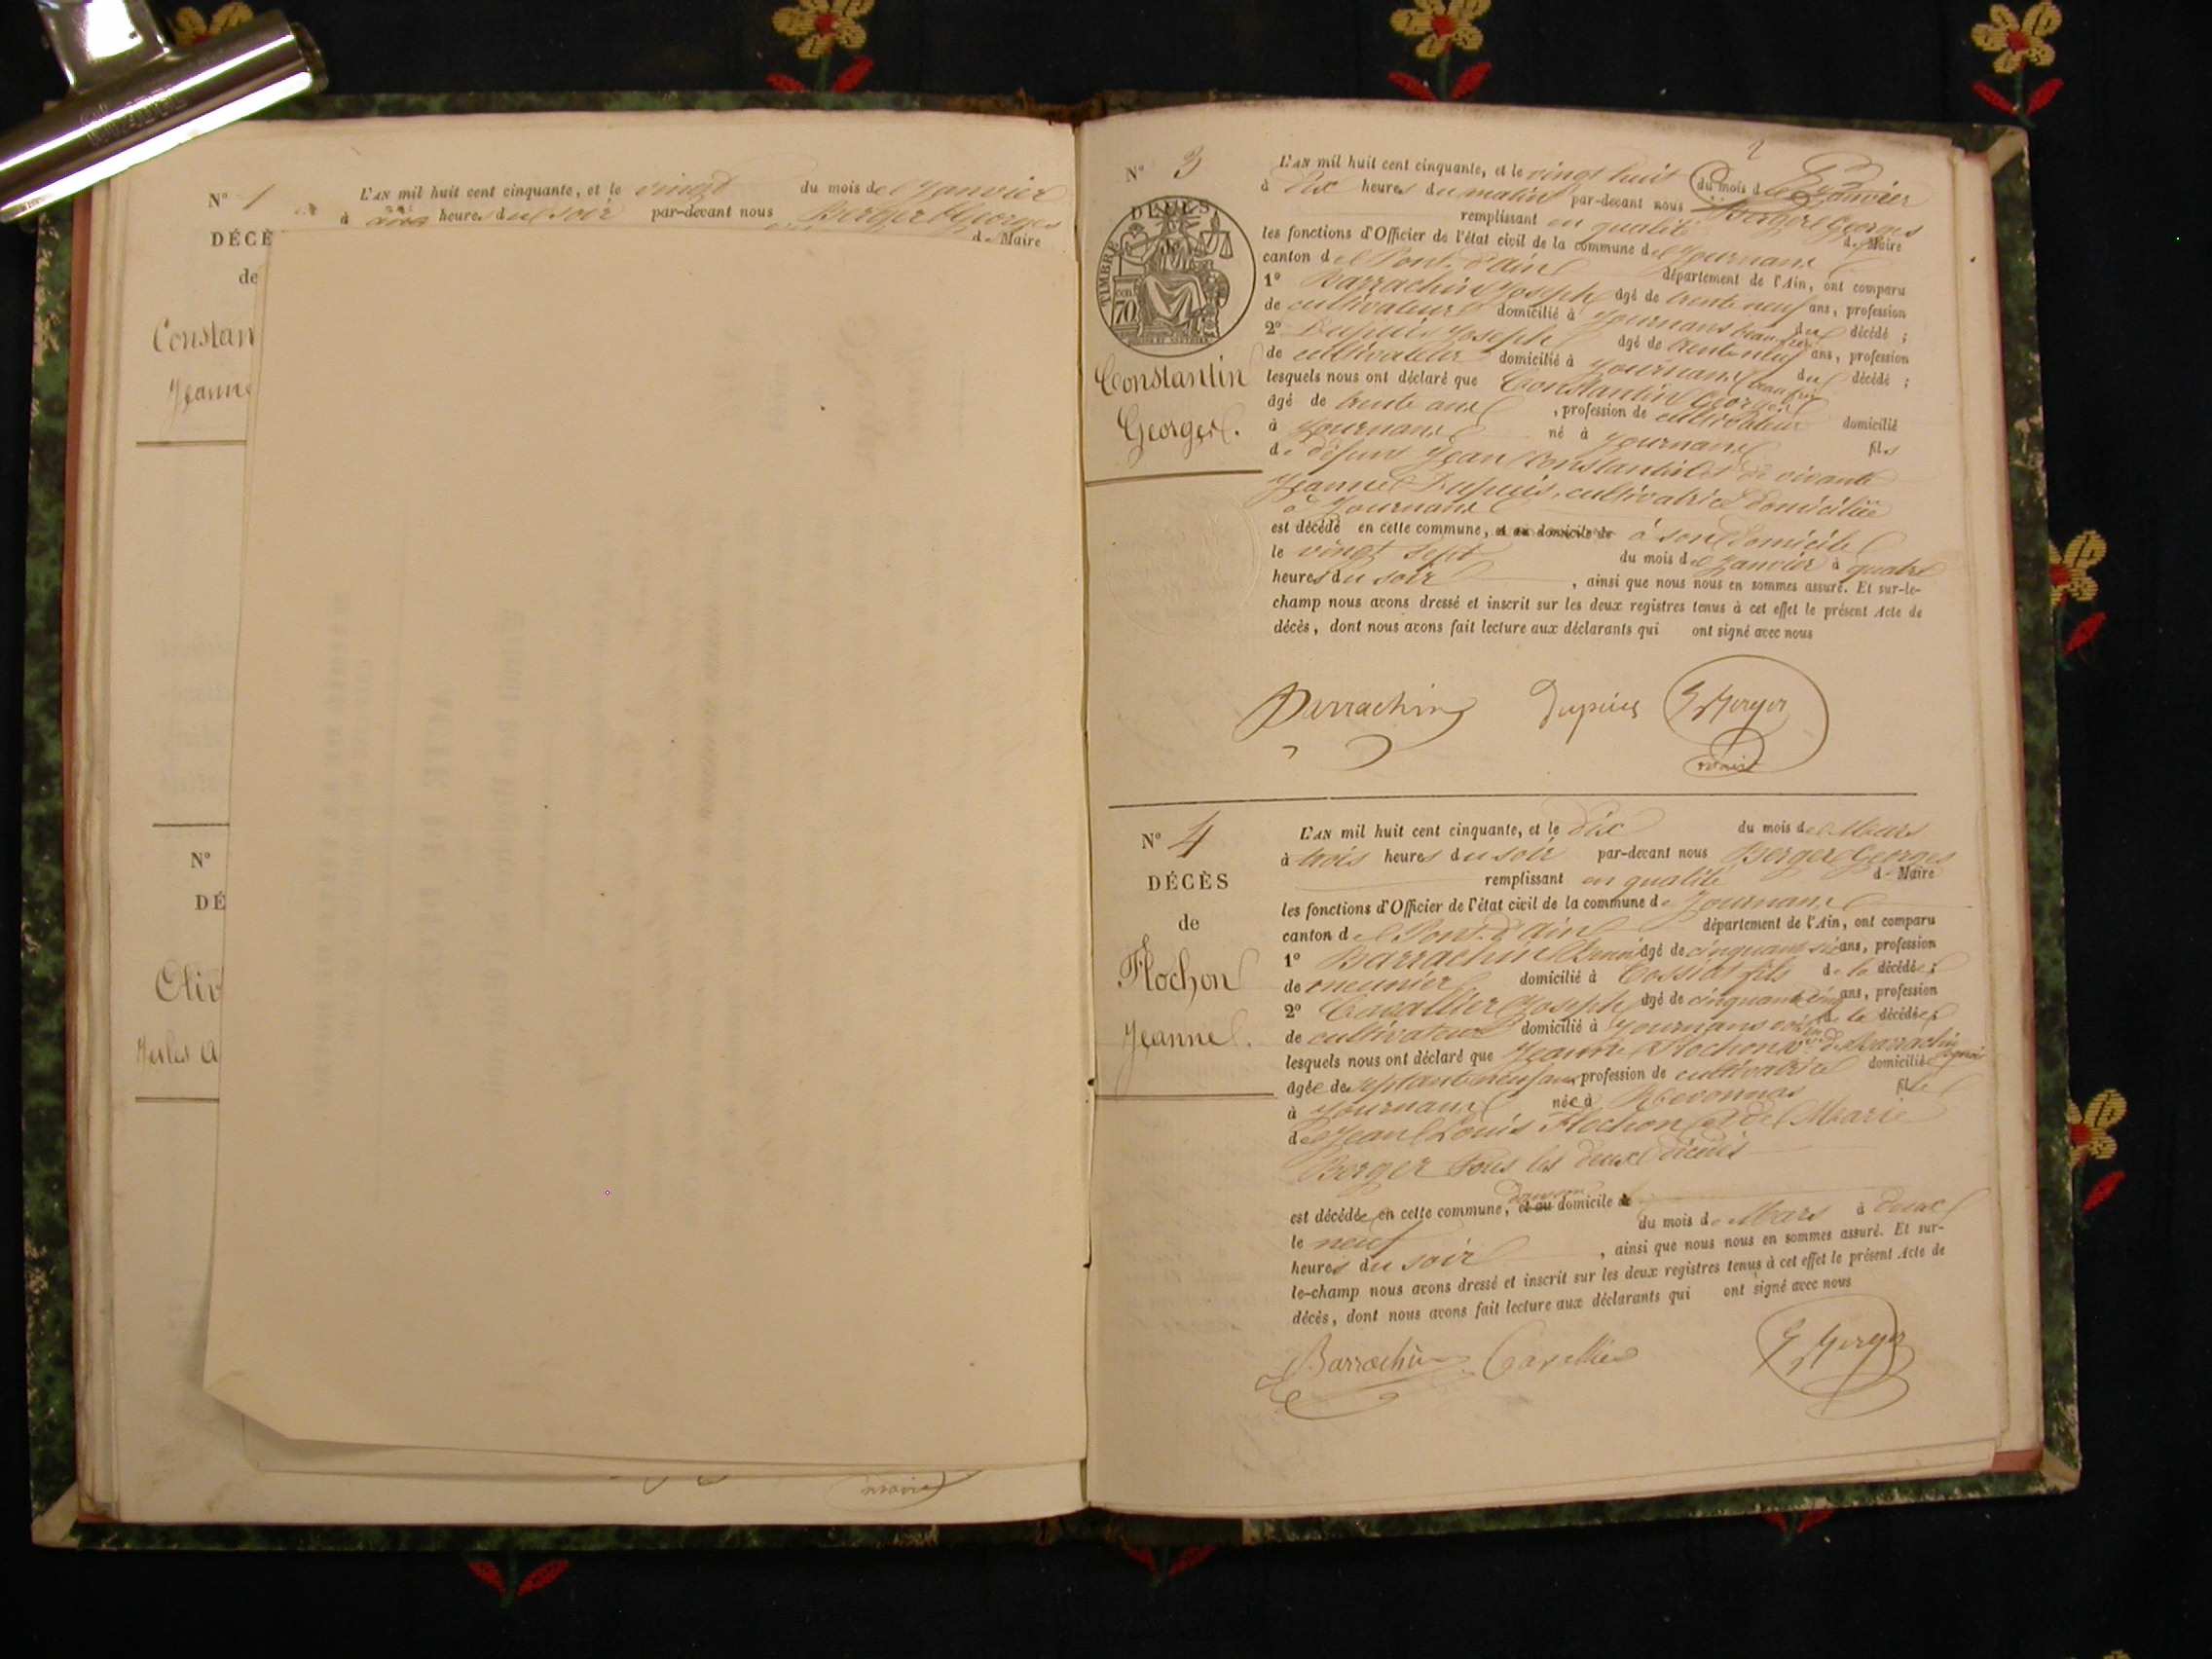 N° 1
L'AN mil huit cent cinquante, et le vingt du mois de Janvier
à heures du soir par-devant nous Berger Georges
d. Maire
DÉCÈ
de
Constan
Jeanne
N°
DÉ
Oliv
maire
2
N° 3
L'AN mil huit cent cinquante, et le vingt huit du mois de Janvier
à Dix heures du matin par-devant nous Berger Georges
remplissant en qualité de Maire
les fonctions d'Officier de l'état civil de la commune de Journans
canton de Pont-d'ain département de l'Ain, ont comparu
1° Barrachin Joseph âgé de trente neuf ans, profession
de cultivateur domicilié à Journans beau frère du décédé ;
2° Dupuis Joseph âgé de trente neuf ans, profession
de cultivateur domicilié à Journans du décédé ;
lesquels nous ont déclaré que Constantin Georges
âgé de trente ans , profession de cultivateur domicilié
à Journans né à Journans fils
de défunt Jean Constantin et de vivante
Jeanne Dupuis, cultivatrice domiciliée
à Journans
est décédé en cette commune, et au domicile de à son domicile
le vingt sept du mois de Janvier à quatre
heures du soir , ainsi que nous nous en sommes assuré. Et sur-le-
champ nous avons dressé et inscrit sur les deux registres tenus à cet effet le présent Acte de
décès, dont nous avons fait lecture aux déclarants qui ont signé avec nous
DÉCÈS
TIMBRE
70
Constantin
Georges.
Barrachin Dupuis G Berger
maire
N° 4
DÉCÈS
de
Flochon
Jeanne.
L'AN mil huit cent cinquante, et le dix du mois de Mars
à trois heures du soir par-devant nous Berger Georges
remplissant en qualité d. Maire
les fonctions d'Officier de l'état civil de la commune de Journans
canton de Pont-d'ain département de l'Ain, ont comparu
1° Barrachin Benoit âgé de cinquante six ans, profession
de meunier domicilié à Bossiat fils de la décédée ;
2° Cavallier Joseph âgé de cinquante cinq ans, profession
de cultivateur domicilié à Journans voisin de la décédée ;
lesquels nous ont déclaré que Jeanne Flochon Vve de Barrachin
âgée de septante neuf ans profession de cultivatrice domiciliée
à Journans née à Revonnas fille
de Jean Louis Flochon et de Marie
Berger tous les deux décédés
est décédée en cette commune, et au dans son domicile de
le neuf du mois de Mars à deux
heures du soir , ainsi que nous nous en sommes assuré. Et sur-
le-champ nous avons dressé et inscrit sur les deux registres tenus à cet effet le présent Acte de
décès, dont nous avons fait lecture aux déclarants qui ont signé avec nous
Barrachin Cavallier G Berger